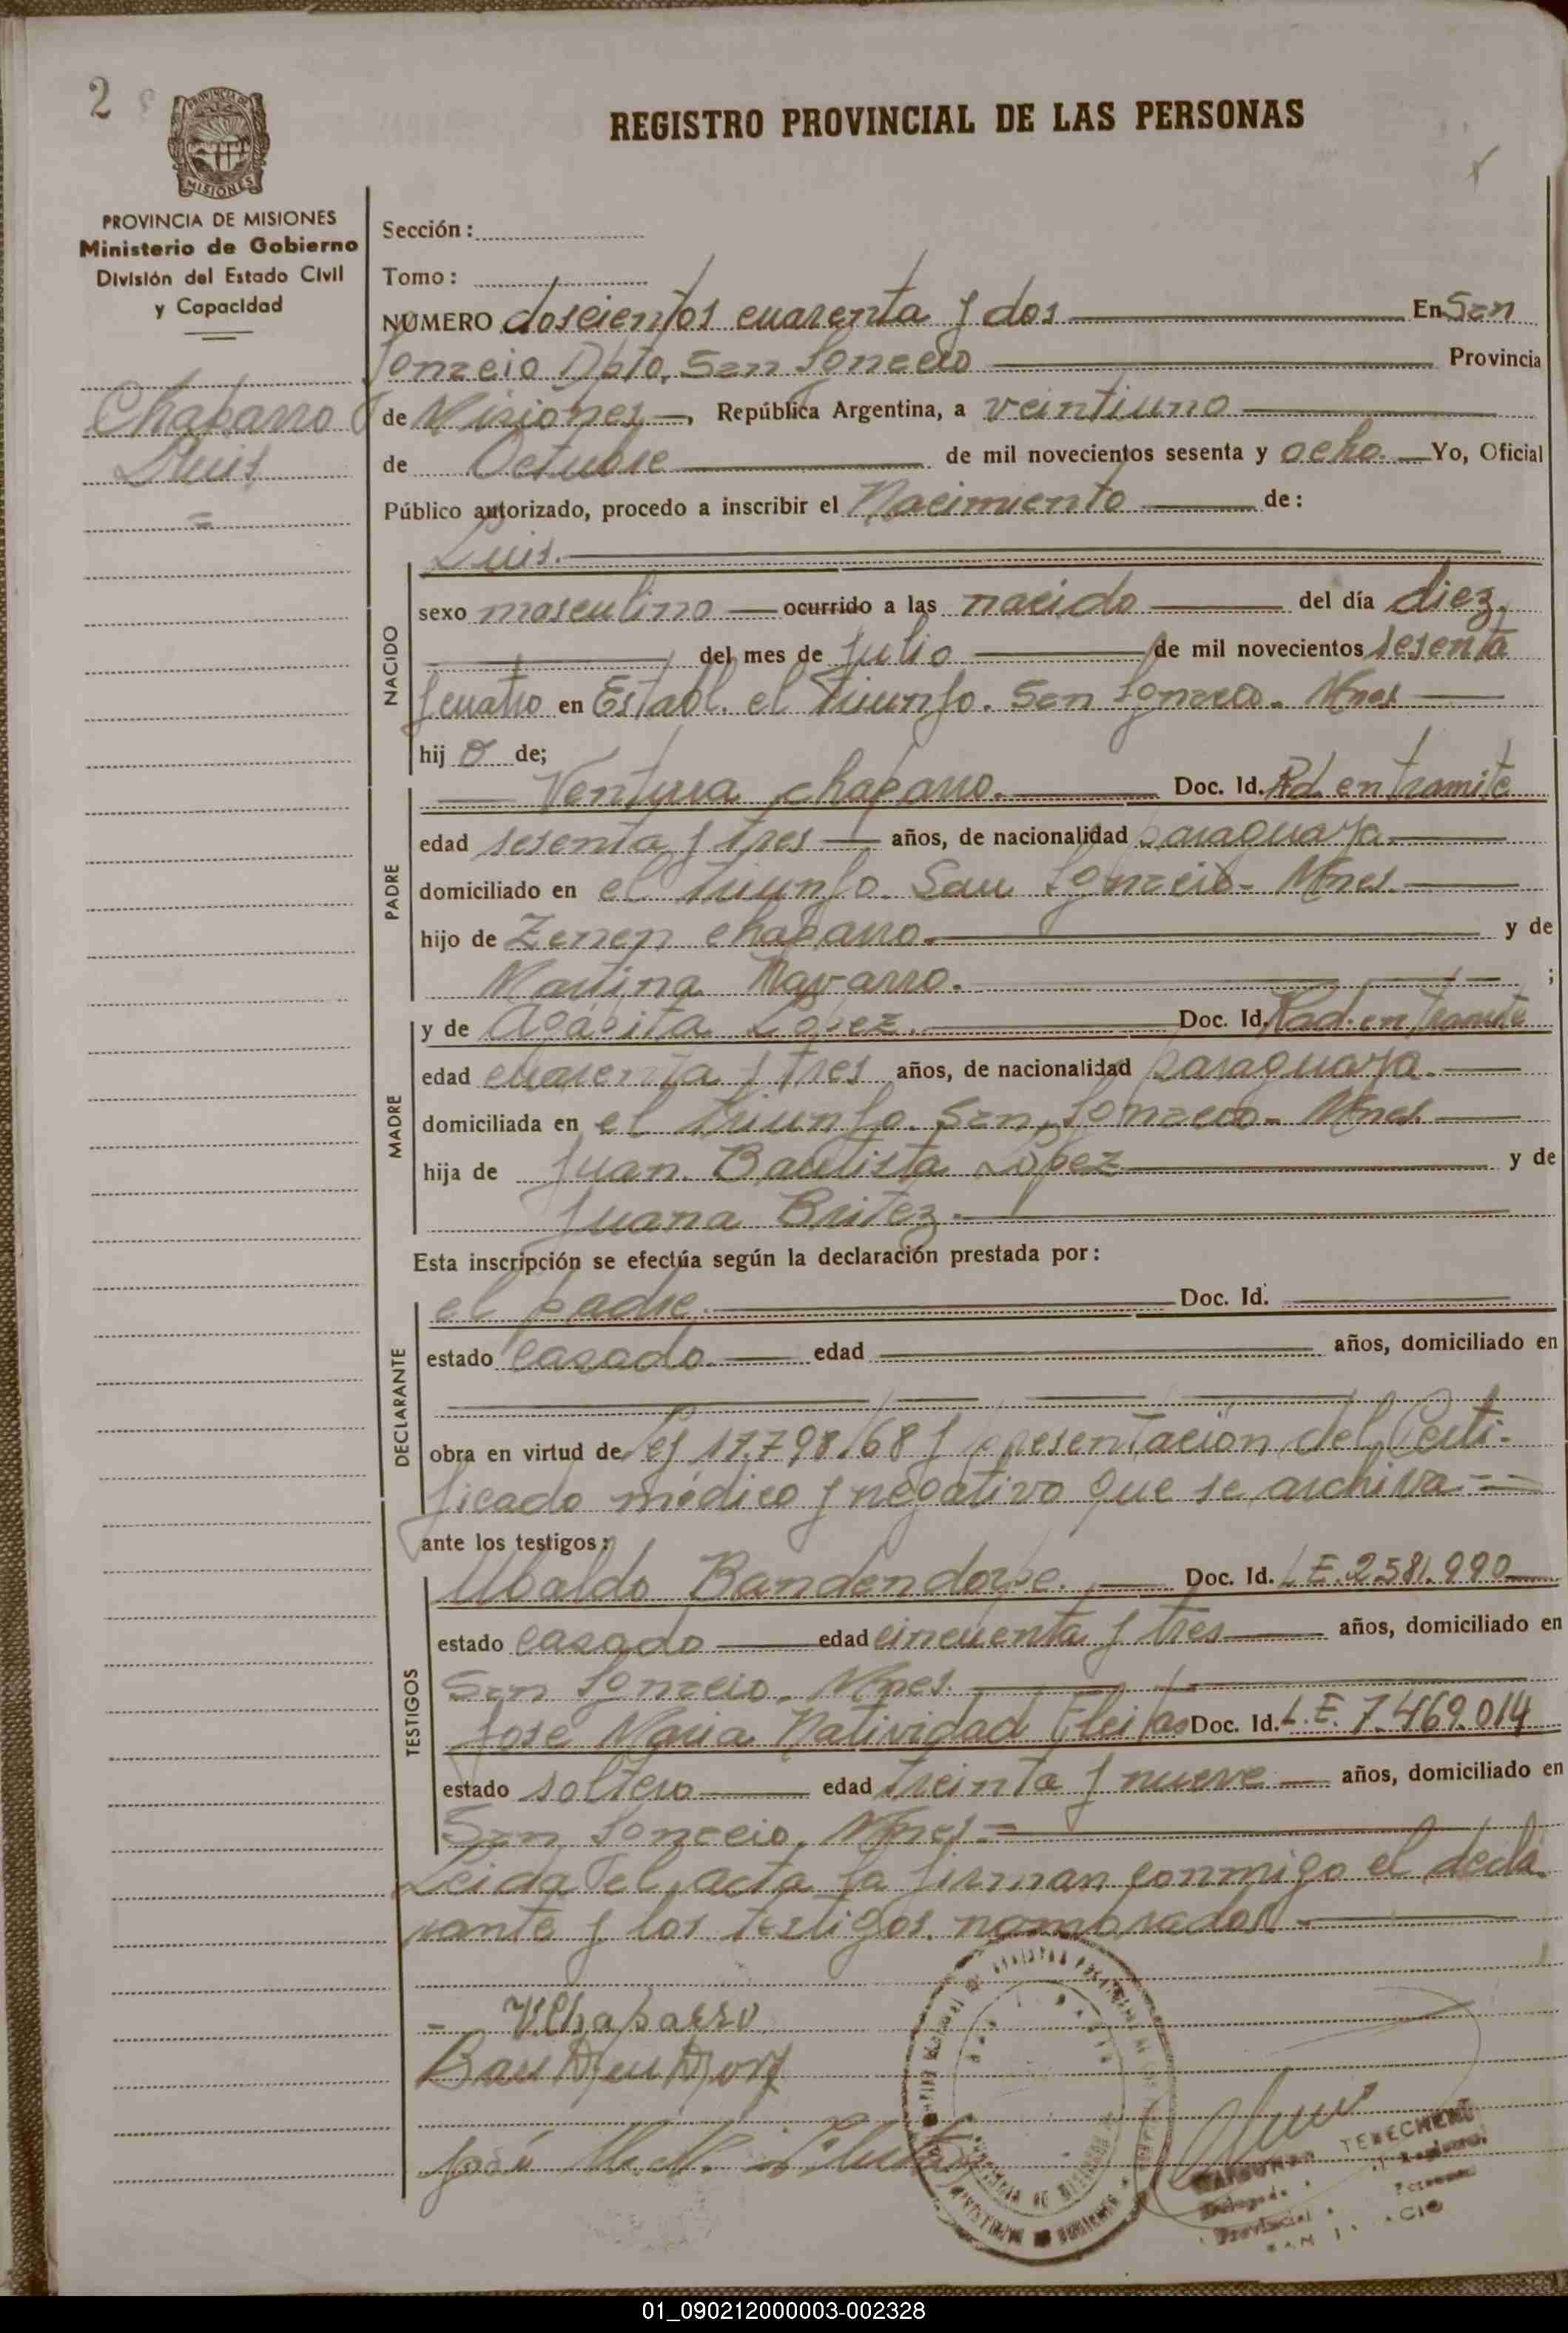 2
REGISTRO PROVINCIAL DE LAS PERSONAS
PROVINCIA DE
MISIONES
PROVINCIA DE MISIONES
Ministerio de Gobierno
División del Estado Civil
y Capacidad
Chaparro
Luis
Sección:
Tomo:
NUMERO doscientos cuarenta y dos En San
Ignacio Dpto. San Ignacio Provincia
de Misiones, República Argentina, a veintiuno
de Octubre de mil novecientos sesenta y ocho. Yo, Oficial
Público autorizado, procedo a inscribir el Nacimiento de:
Luis.
NACIDO
sexo masculino ocurrido a las nacido del día diez,
del mes de Julio de mil novecientos sesenta
y cuatro en Establ. el Triunfo. San Ignacio. Mnes
hijo de;
PADRE
Ventura Chaparro. Doc. Id. Rd. en tramite
edad sesenta y tres años, de nacionalidad paraguaya
domiciliado en el Triunfo. San Ignacio - Mnes.
hijo de Zenen Chaparro. y de
Martina Navarro. ;
MADRE
y de Agapita López. Doc. Id. Rad. en tramite
edad cuarenta y tres años, de nacionalidad paraguaya.
domiciliada en el Triunfo. San Ignacio - Mnes.
hija de Juan Bautista López y de
Juana Britez.
Esta inscripción se efectúa según la declaración prestada por:
DECLARANTE
el padre. Doc. Id.
estado casado. edad años, domiciliado en
obra en virtud de ley 17.798/68 y presentación del Certi-
ficado médico y negativo que se archiva
ante los testigos:
TESTIGOS
Ubaldo Bandendorpe. Doc. Id. L.E. 2.581.990
estado casado edad cincuenta y tres años, domiciliado en
San Ignacio. Mnes.
José Maria Natividad Fleitas Doc. Id. L.E. 7.469.014
estado soltero edad treinta y nueve años, domiciliado en
San Ignacio. Mnes.
Leida el acta la firman conmigo el decla
rante y los testigos nombrados
V. Chaparro
José M. N.
TERECHENU
01_090212000003-002328